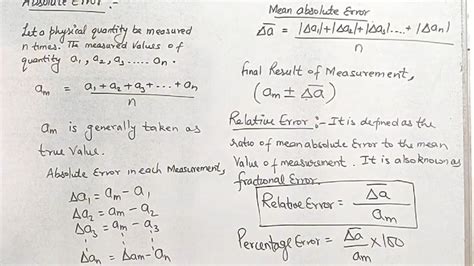 Absolute Error :-
Let a physical quantity be measured
n times. The measured values of
quantity a₁, a₂, a₃ ..... aₙ.
aₘ = a₁ + a₂ + a₃ + ... + aₙ
n
aₘ is generally taken as
true value.
Absolute Error in each Measurement,
Δa₁ = aₘ - a₁
Δa₂ = aₘ - a₂
Δa₃ = aₘ - a₃
Δaₙ = aₘ - aₙ
Mean absolute Error
Δa̅ = |Δa₁|+|Δa₂|+|Δa₃|....+|Δaₙ|
n
final Result of Measurement,
(aₘ ± Δa̅)
Relative Error :- It is defined as the
ratio of mean absolute Error to the mean
Value of measurement. It is also known as
fractional Error.
Relative Error = Δa̅
aₘ
Percentage Error = Δa̅ × 100
aₘ